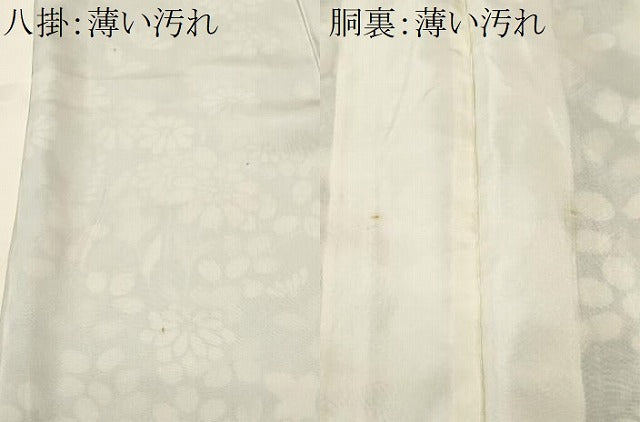 八掛：薄い汚れ
胴裏：薄い汚れ